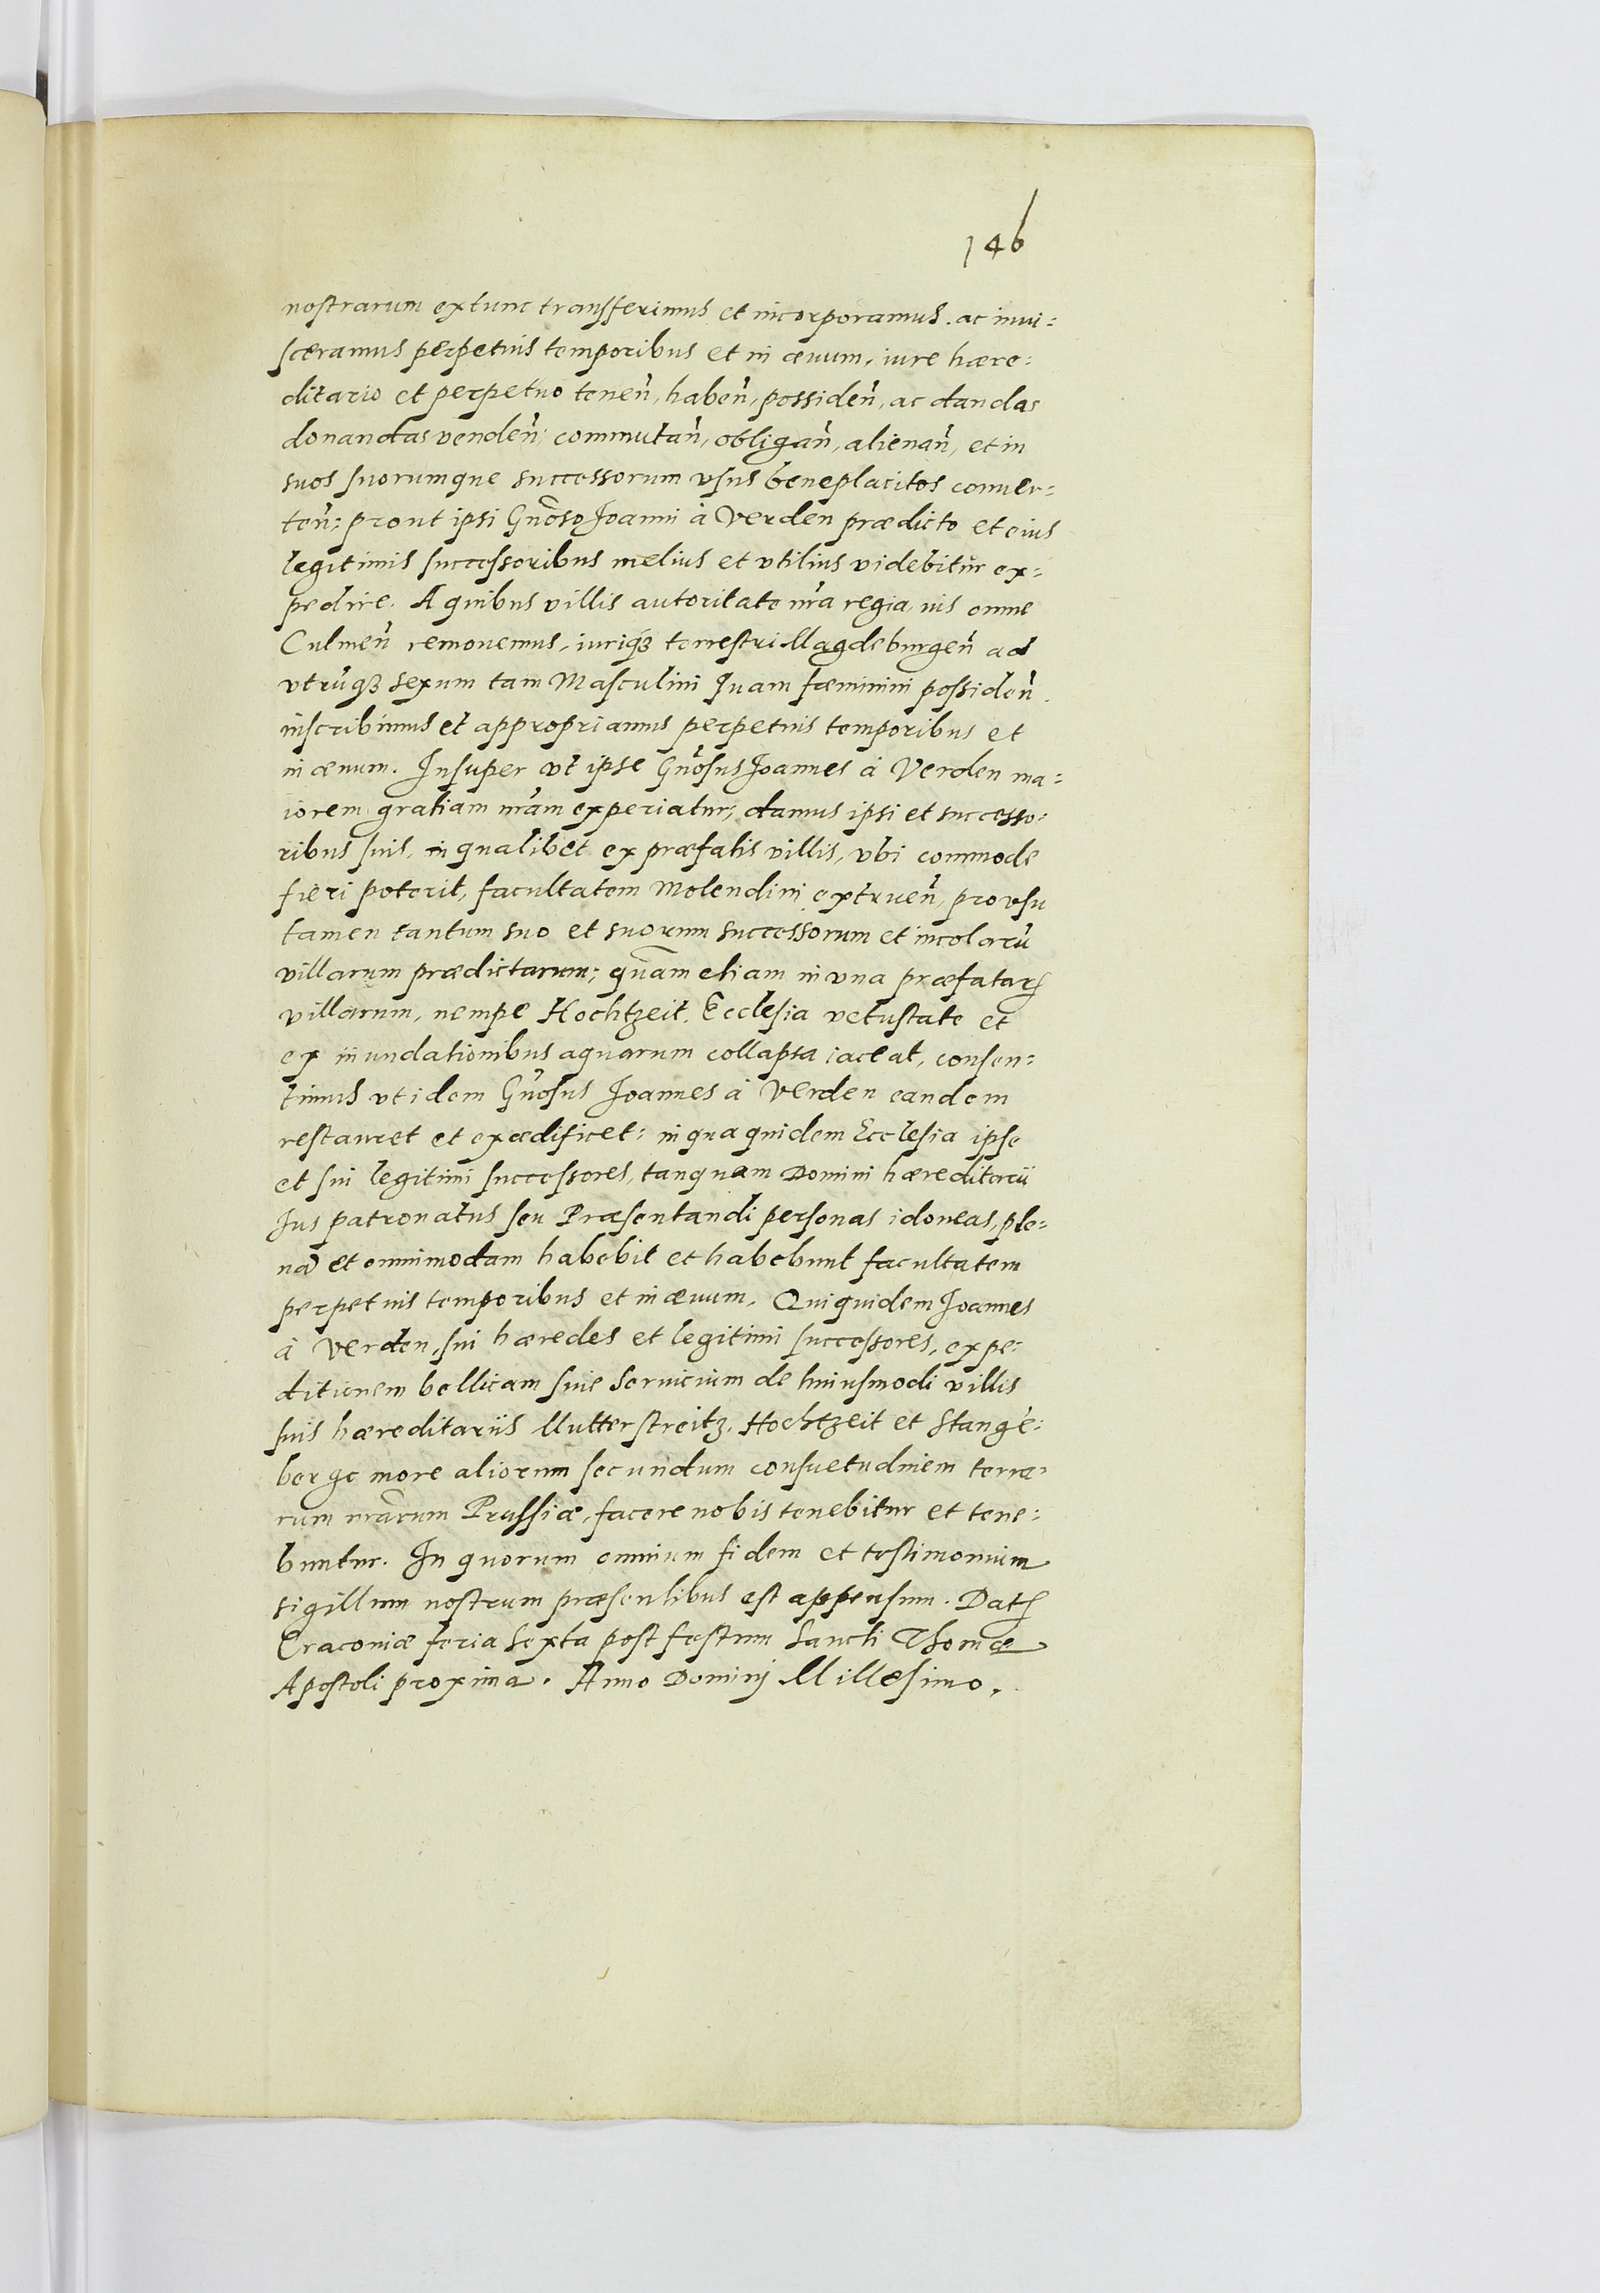 146
nostrarum extunc transferimus et incorporamus. ac invi=
sceramus perpetuis temporibus et in æuum, iure hære=
ditario et perpetuo tenen̄, haben̄, possiden̄, ac dandas
donandas venden̄, commutan̄, obligan̄, alienan̄, et in
suos suorumque successorum vsus beneplacitos conuer=
ten̄: prout ipsi Gn̄oso Joanni à Verden prædicto et eius
legitimis successoribus melius et vtilius videbitur ex=
pedire. A quibus villis autoritate nr̄a regia, ius omne
Culmen̄ remouemus, iuriqꝫ terrestri Magdeburgen̄ ad
vtrūqꝫ sexum tam Masculini quam fœminini possiden̄
inscribimus et appropriamus perpetuis temporibus et
in æuum. Insuper vt ipse Gn̄osus Joannes à Verden ma=
iorem gratiam nr̄am experiatur, damus ipsi et successo=
ribus suis, in qualibet ex præfatis villis, vbi commode
fieri poterit, facultatem Molendini extruen̄, pro vsu
tamen tantum suo et suorum successorum et incolarū
villarum prædictarum; qūam etiam in vna præfatarꝫ
villarum, nempe Hochtzeit, Ecclesia vetustate et
ex inundationibus aquarum collapsa iaceat, consen=
timus vt idem Gn̄osus Joannes à Verden eandem
restauret et exædificet: in qua quidem Ecclesia ipse
et sui legitimi successores, tanquam Domini hæreditarii
Jus patronatus seu Præsentandi personas idoneas, ple=
nā et omnimodam habebit et habebunt facultatem
perpetuis temporibus et in æuum. Qui quidem Joannes
à Verden, sui hæredes et legitimi successores, expe=
ditionem bellicam siue seruicium de huiusmodi villis
suis hæreditariis Mutterstreitz, Hochtzeit et Stange=
berge more aliorum secundum consuetudinem terra=
rum nr̄arum Prussiæ, facere nobis tenebitur et tene=
buntur. In quorum omnium fidem et testimonium
sigillum nostrum præsentibus est appensum. Datꝫ
Cracouiæ feria sexta post festum Sancti Thomæ
Apostoli proxima. Anno Dominj Millesimo.